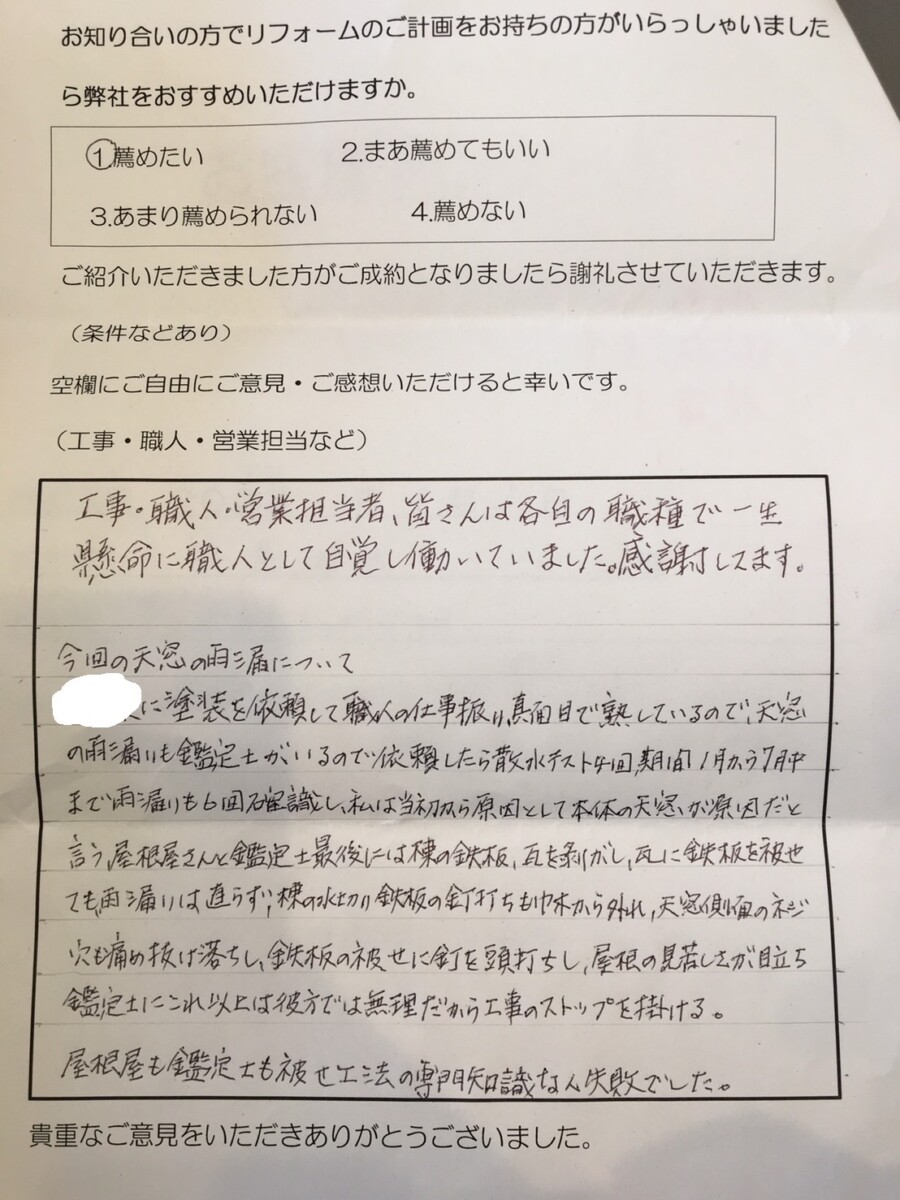 お知り合いの方でリフォームのご計画をお持ちの方がいらっしゃいました
ら弊社をおすすめいただけますか。
①薦めたい 2.まあ薦めてもいい
3.あまり薦められない 4.薦めない
ご紹介いただきました方がご成約となりましたら謝礼させていただきます。
（条件などあり）
空欄にご自由にご意見・ご感想いただけると幸いです。
（工事・職人・営業担当など）
工事・職人・営業担当者、皆さんは各自の職種で一生
懸命に職人として自覚し働いていました。感謝してます。
今回の天窓の雨漏について
に塗装を依頼して職人の仕事振り、真面目で熟しているので、天窓
の雨漏いも鑑定士がいるので依頼したら散水テスト4回、期間1月から7月中
まで雨漏りも6回確識し、私は当初から原因として本体の天窓が原因だと
言う、屋根屋さんと鑑定士最後には棟の鉄板、瓦を剥がし、瓦に鉄板を被せ
ても、雨漏りは直らず、棟の水切り鉄板の釘打ちも巾木から外れ、天窓側面のネジ
穴も痛め抜け落ちし、鉄板の被せに釘を頭打ちし、屋根の見苦しさが目立ち
鑑定士にこれ以上は彼方では無理だから工事のストップを掛ける。
屋根屋も鑑定士も被せ工法の専門知識なく失敗でした。
貴重なご意見をいただきありがとうございました。